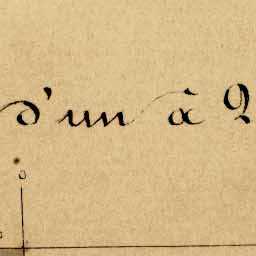 d'un à 2
o